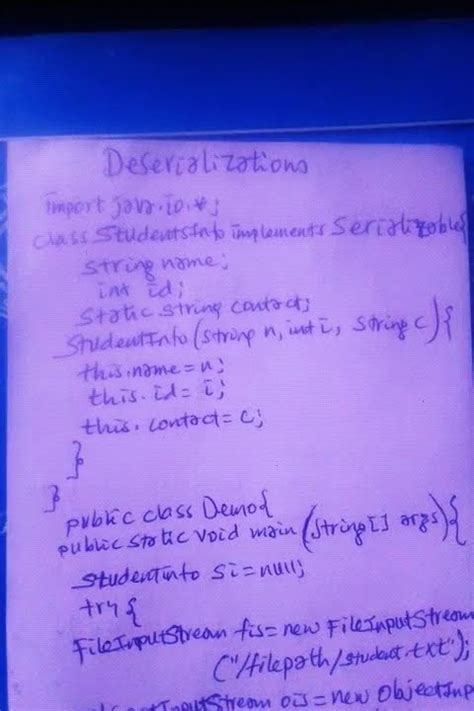 Deserializations
import java.io.*;
class StudentsInfo implements Serializable{
string name;
int id;
static string contact;
StudentInfo(string n, int i, string c){
this.name = n;
this.id = i;
this.contact = c;
}
}
public class Demo{
public static void main (string[] args){
studentinto si=null;
try {
FileInputStream fis= new FileInputStream
("/filepath/student.txt");
InputStream ois = new ObjectInp